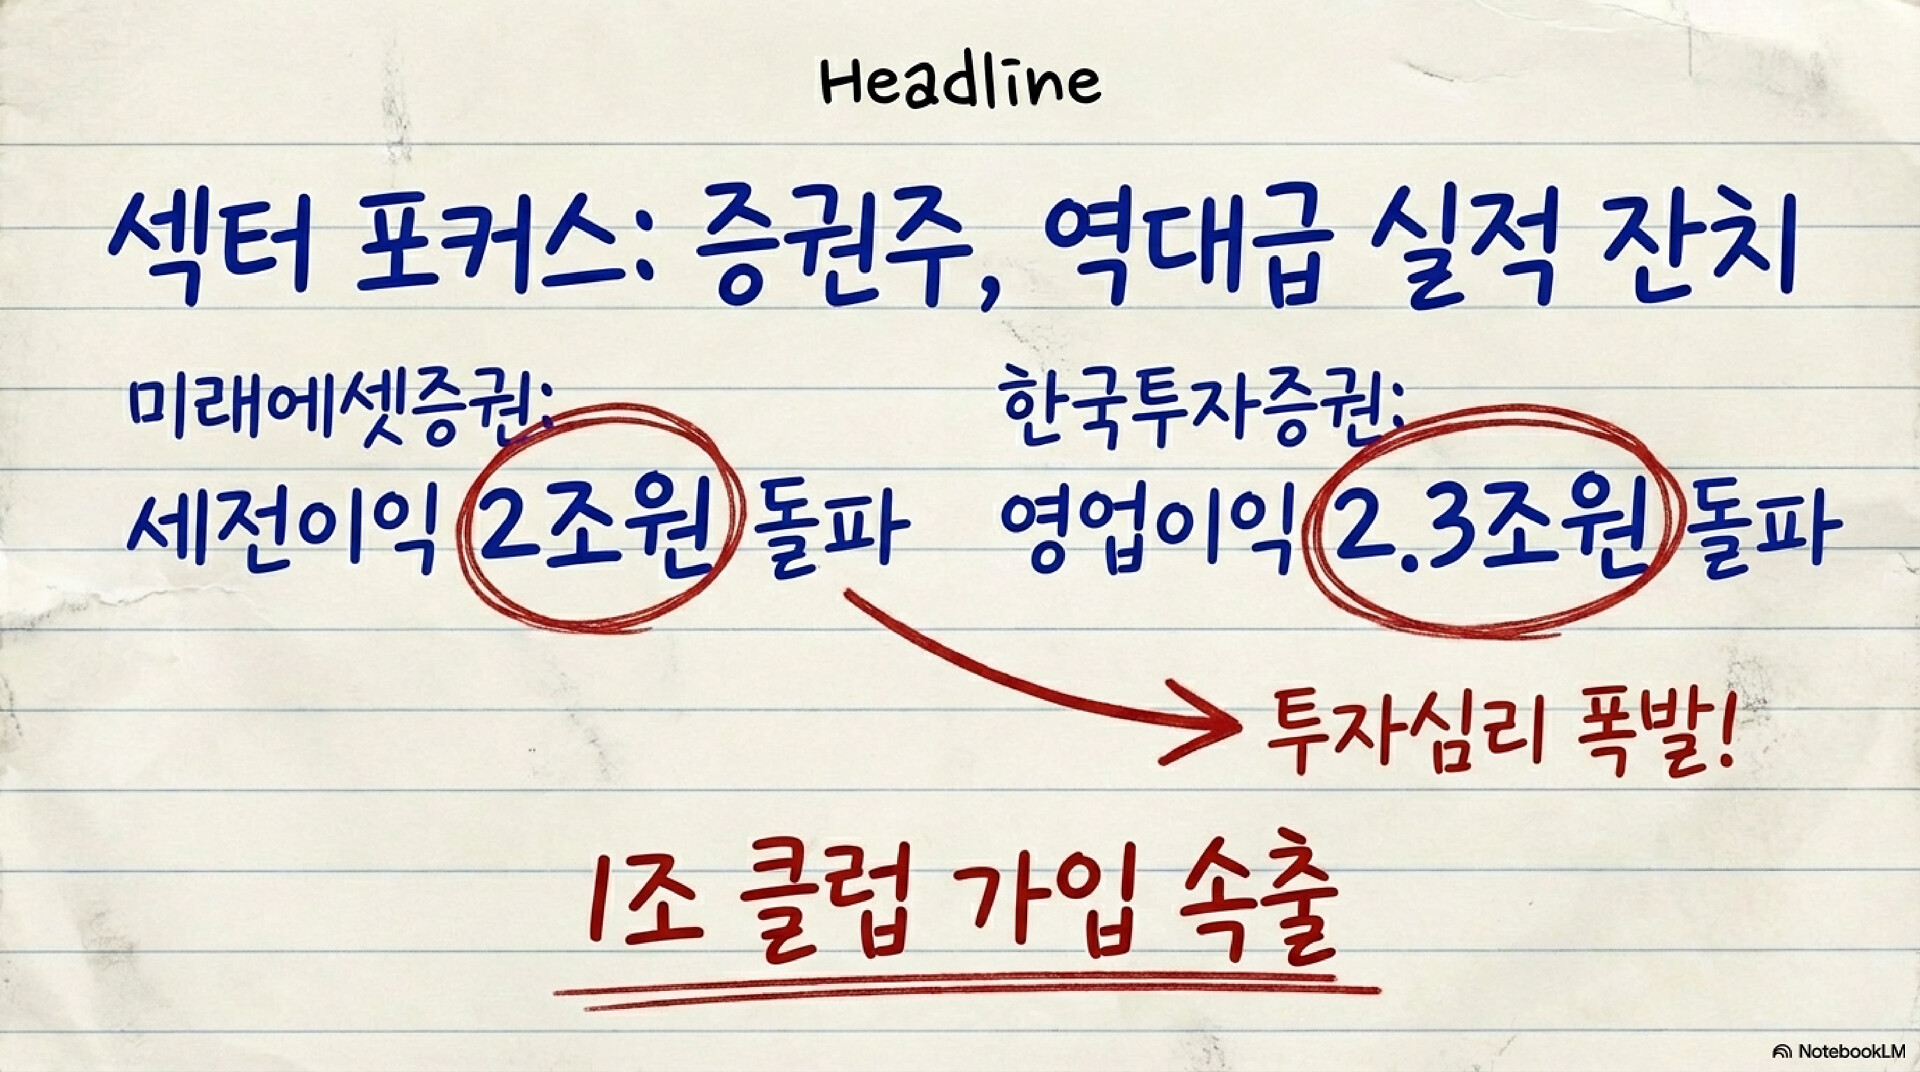 Headline
섹터 포커스: 증권주, 역대급 실적 잔치
미래에셋증권:
세전이익 2조원 돌파
한국투자증권:
영업이익 2.3조원 돌파
투자심리 폭발!
1조 클럽 가입 속출
NotebookLM